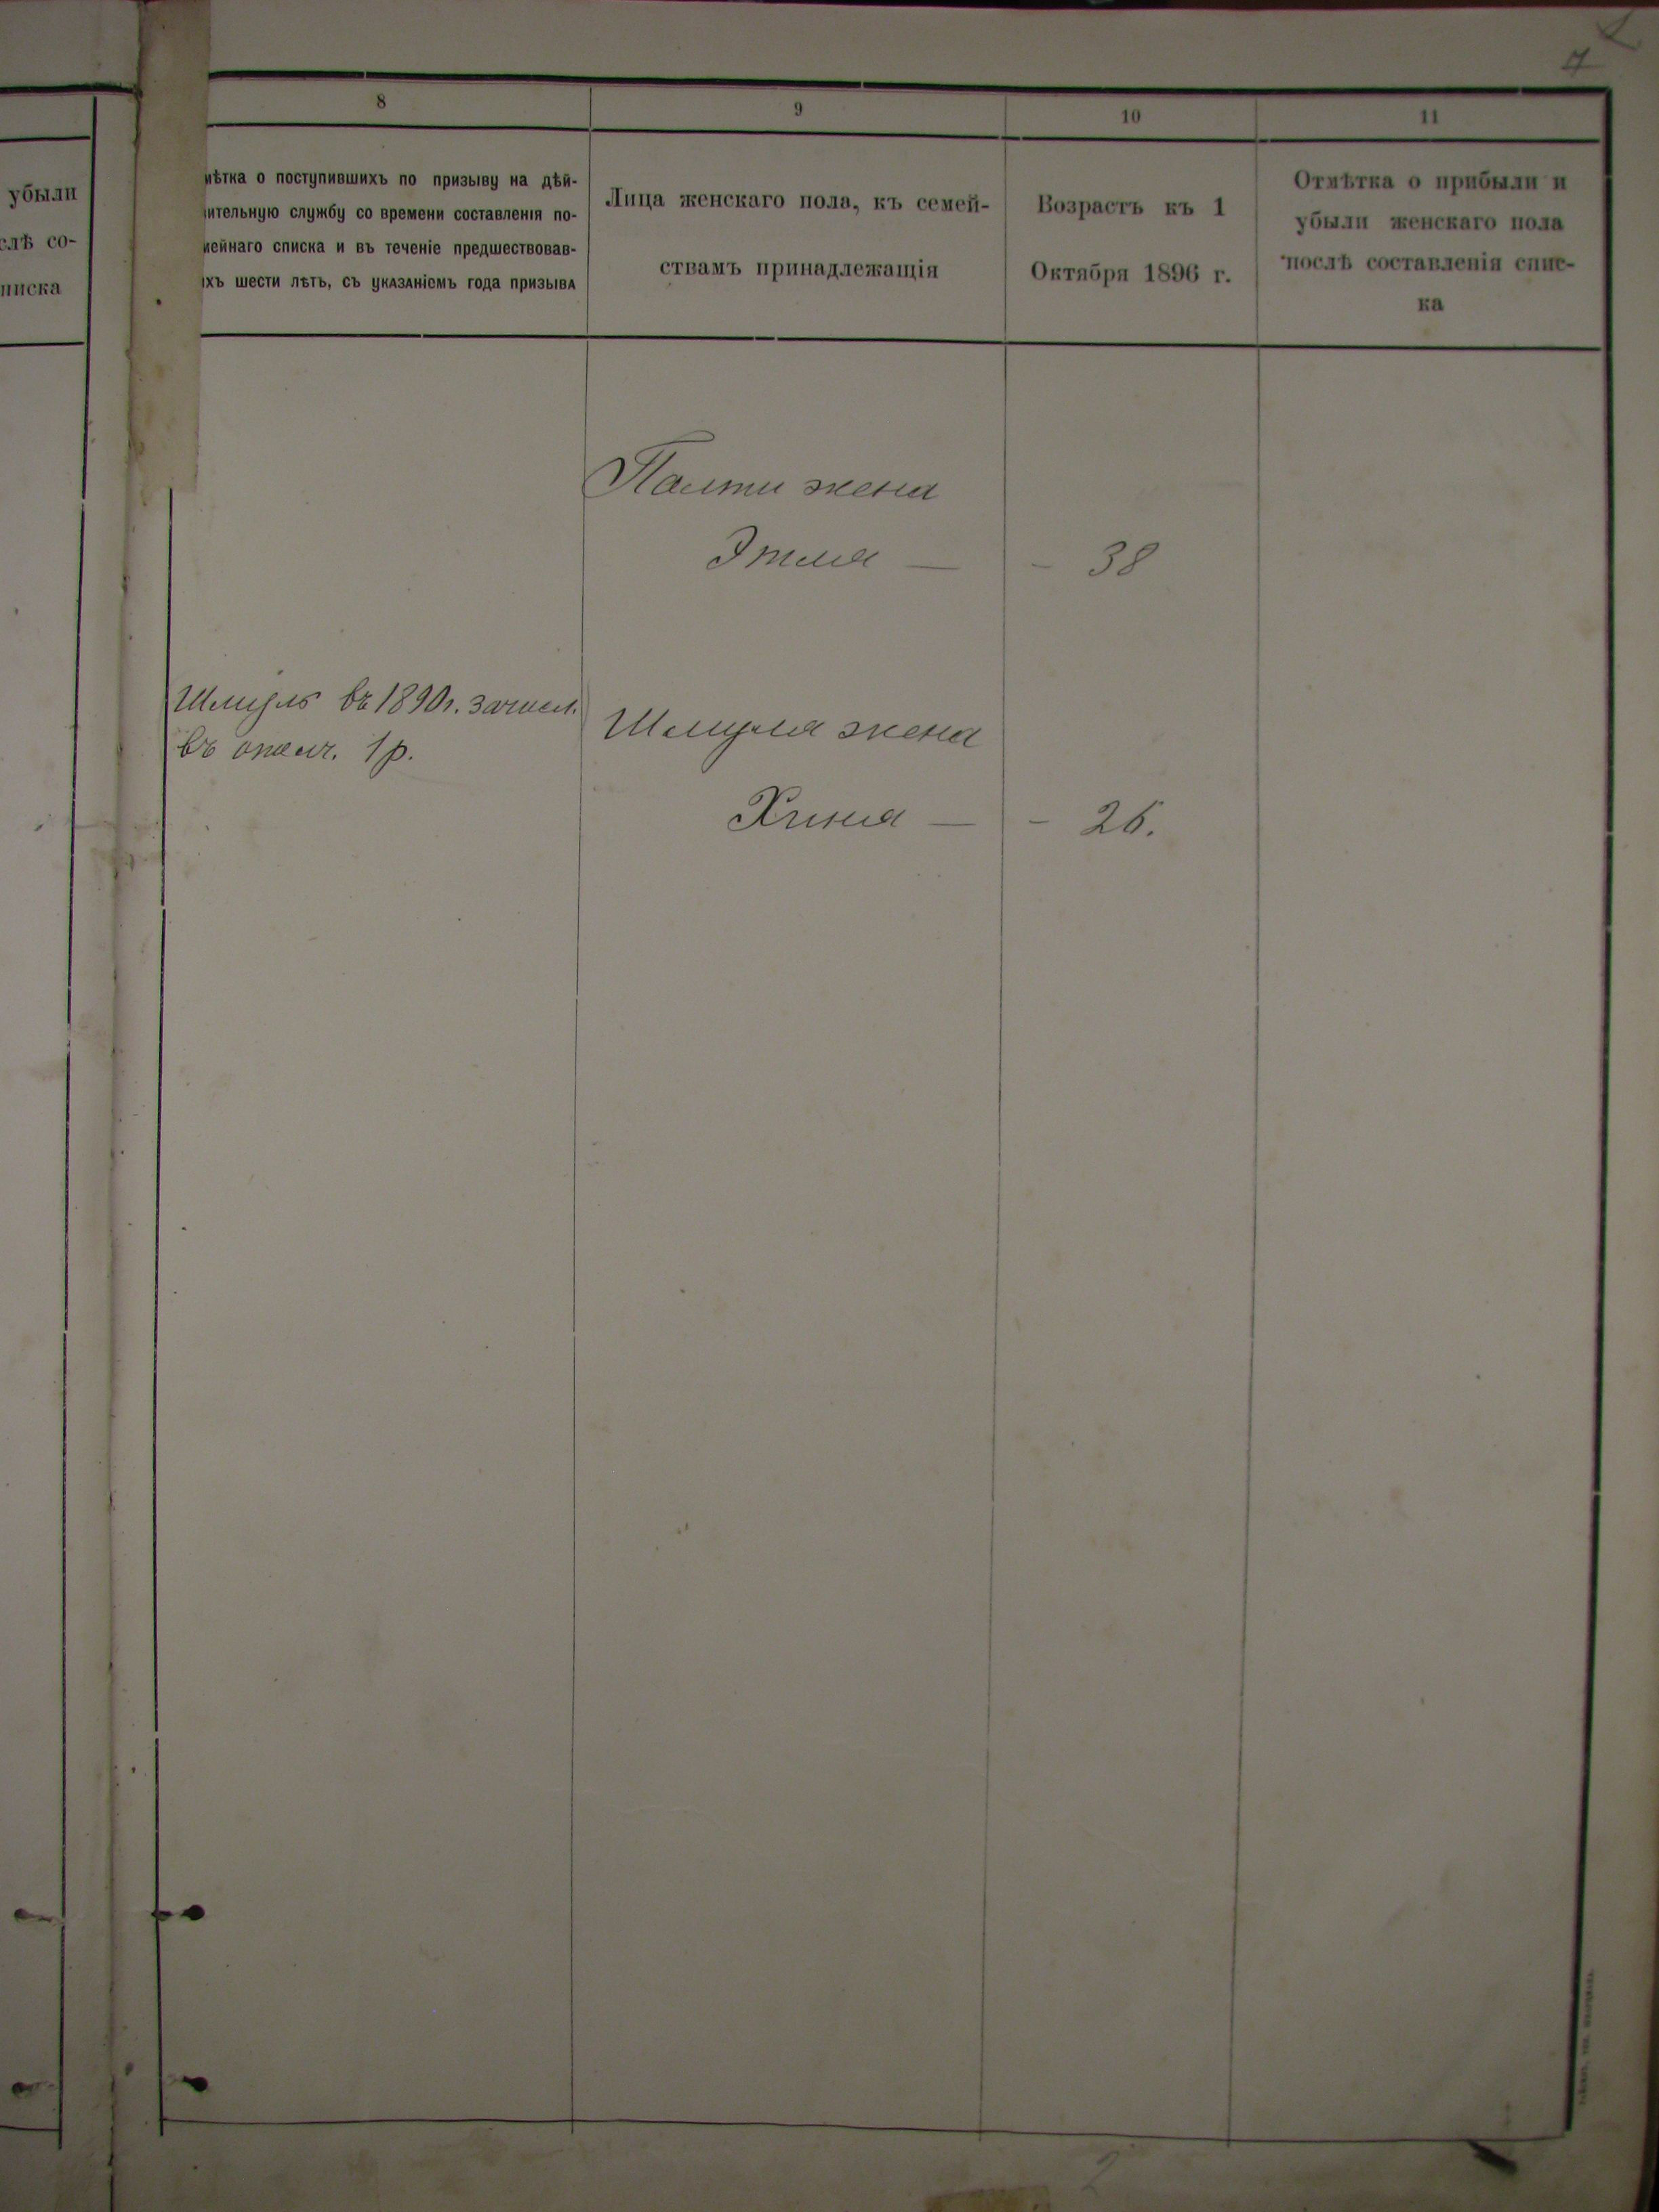 убыли
слѣ со-
писка
4
8
9
10
11
мѣтка о поступившихъ по призыву на дѣй-
ительную службу со времени составленія по-
мейнаго списка и въ теченіе предшествовав-
ихъ шести лѣтъ, съ указаніемъ года призыва
Лица женскаго пола, къ семей-
ствамъ принадлежащія
Возрастъ къ 1
Октября 1896 г.
Отмѣтка о прибыли и
убыли женскаго пола
послѣ составленія спис-
ка
Палти жена
Этля — - 38
Шмуль въ 1890 г. зачисл.
въ ополч. 1 р.
Шмуля жена
Хиня — - 26.
2